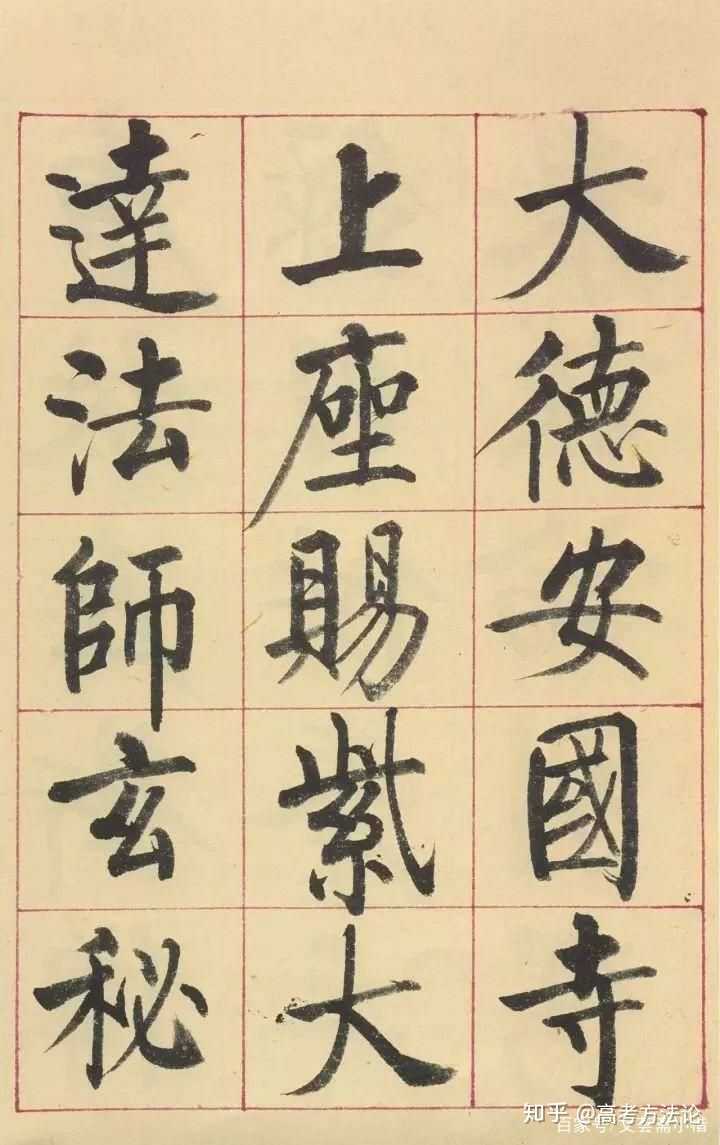 大德安國寺
上座賜紫大
達法師玄秘
知乎 @高考方法论